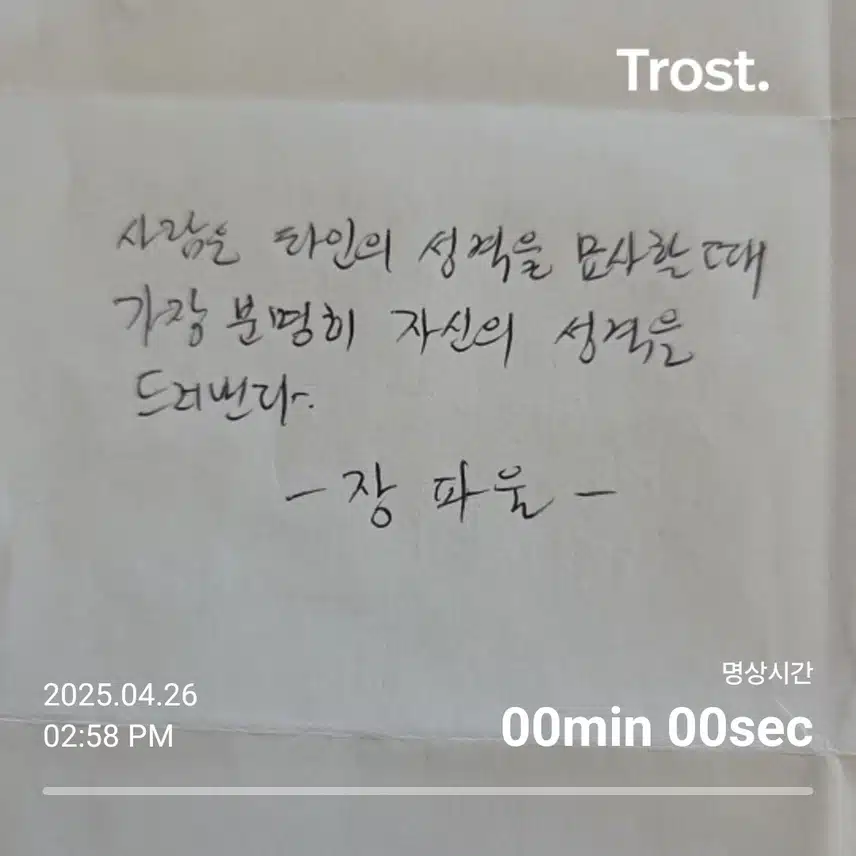 Trost.
사람은 타인의 성격을 묘사할 때
가장 분명히 자신의 성격을
드러낸다.
- 장 파울 -
명상시간
2025.04.26
00min 00sec
02:58 PM